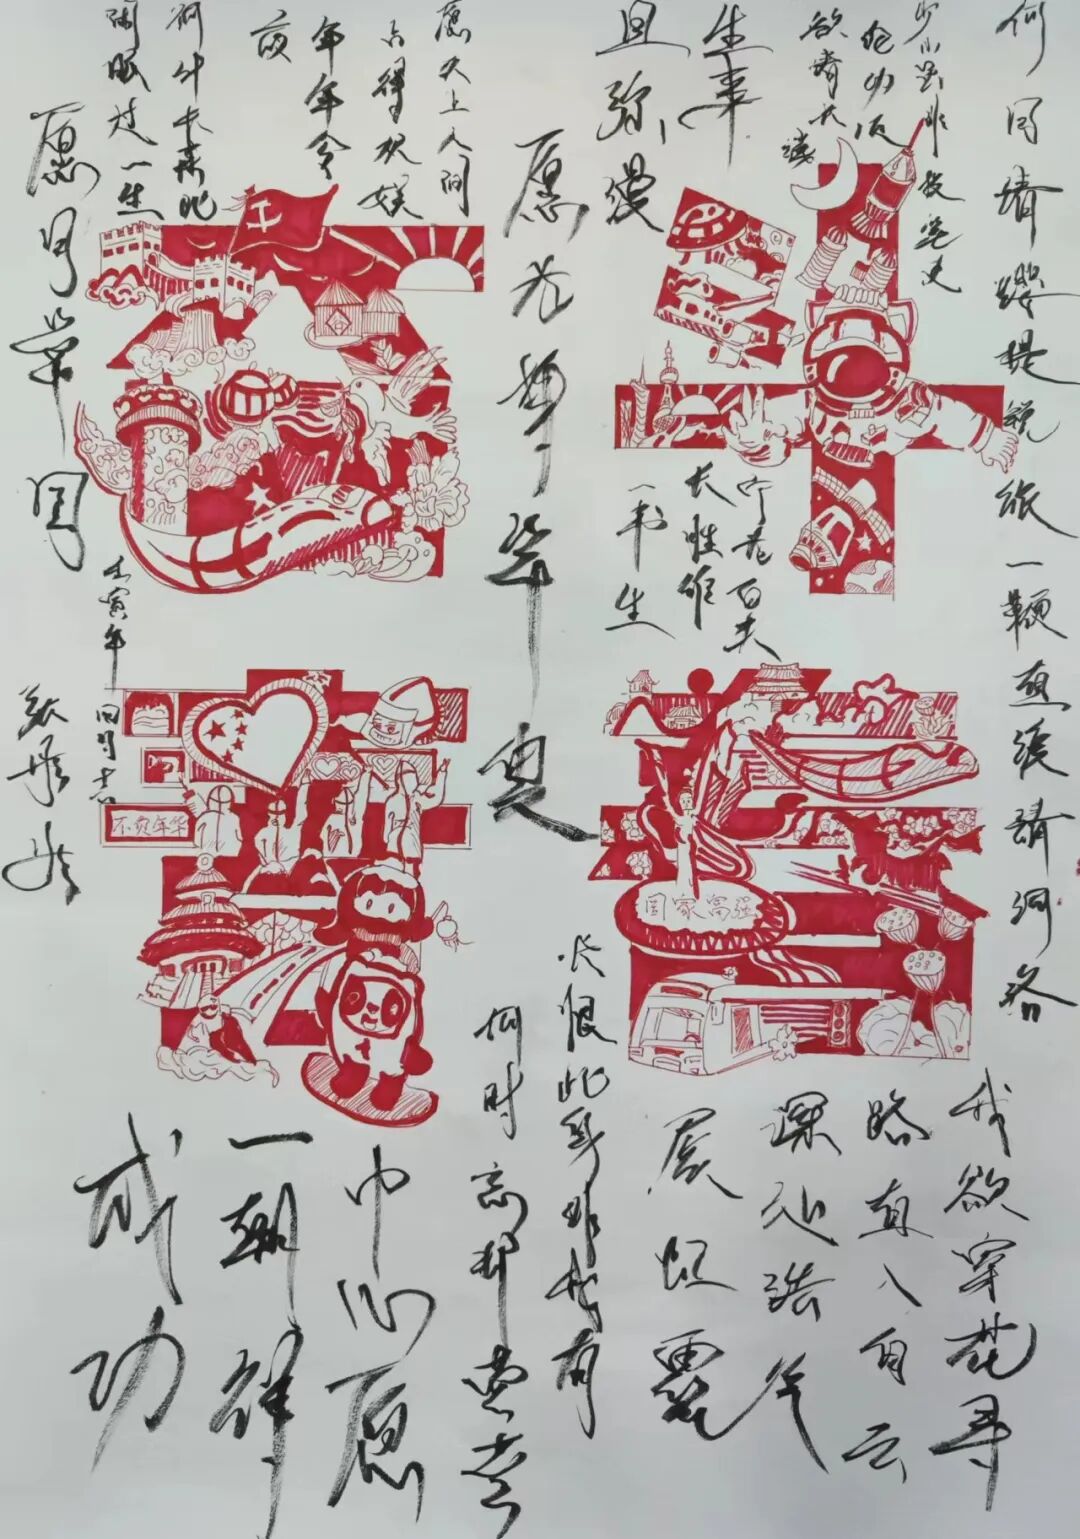 何日请缨提锐旅一鞭直渡清河洛
少小虽非投笔吏
论功还
欲请长缨
宁为百夫
长胜作
一书生
生事
且弥漫
愿为持竿叟
愿天上人间
占得欢娱
年年今
夜
何计长来此
闲眠过一生
愿月常圆
壬寅年
不负年华
国家富强
我欲穿花寻
路直入白云
深处浩气
展虹霓
长恨此身非我有
何时忘却营营
中心愿
一朝
成功